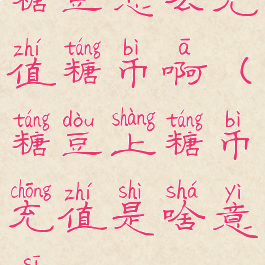 糖豆怎么充
zhí táng bì ā
值糖币啊(
táng dòu shàng táng bì
糖豆上糖币
chōng zhí shì shá yì
充值是啥意
sī